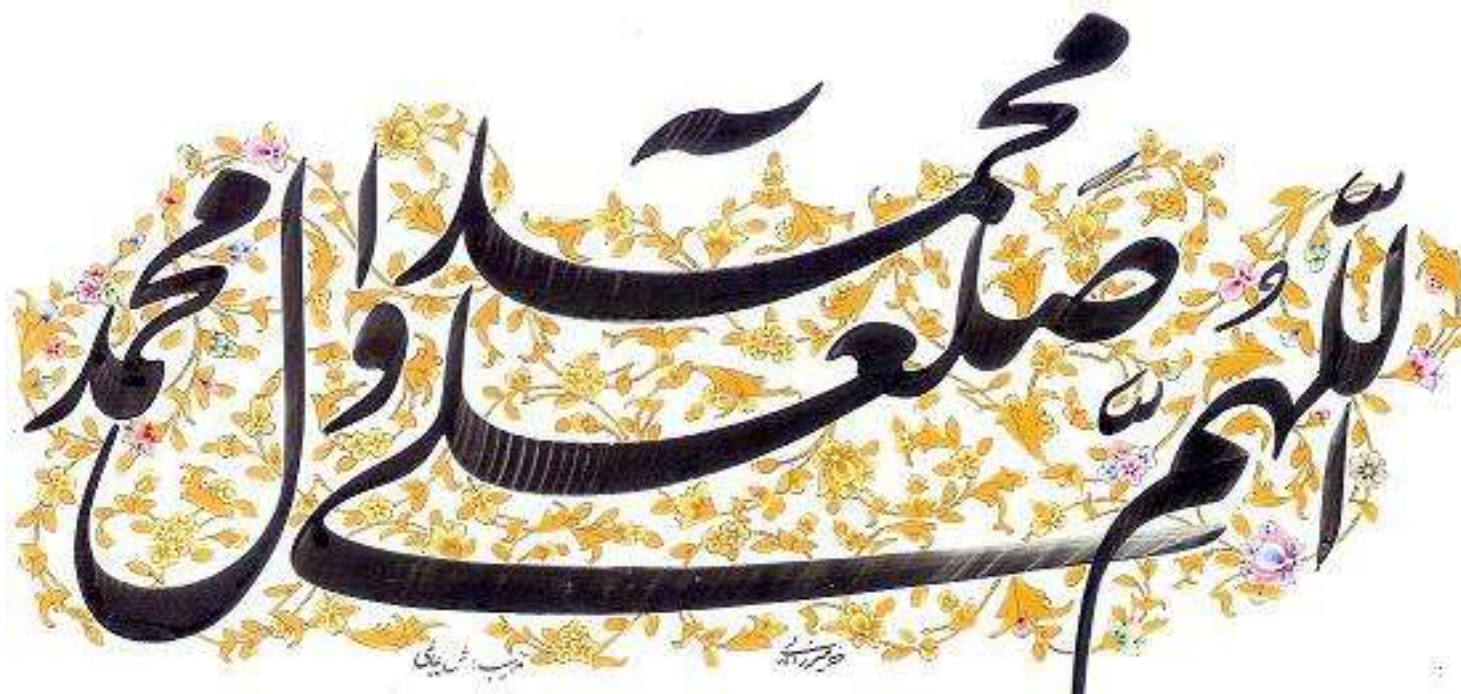 اللّهُمَّ صل علی محمد و آل محمد